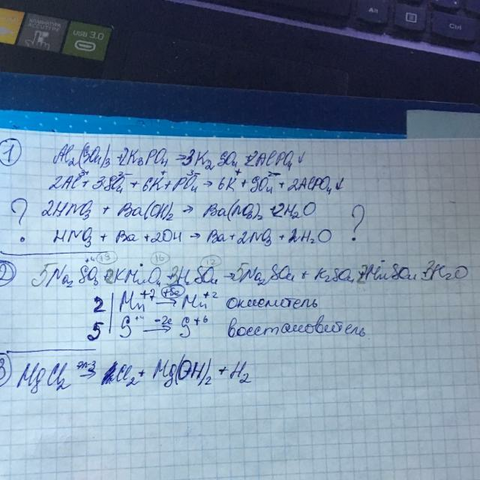 USB 3.0
Alt
Ctrl
① Al₂(SO₄)₃ + 2K₃PO₄ → 3K₂SO₄ + 2AlPO₄↓
2Al³⁺ + 3SO₄²⁻ + 6K⁺ + PO₄³⁻ → 6K⁺ + SO₄²⁻ + 2AlPO₄↓
? 2HNO₃ + Ba(OH)₂ → Ba(NO₃)₂ + 2H₂O ?
HNO₃ + Ba + 2OH → Ba + 2NO₃ + 2H₂O
② 5Na₂SO₃ + 2KMnO₄ + 3H₂SO₄ → 5Na₂SO₄ + K₂SO₄ + 2MnSO₄ + 3H₂O
2 | Mn⁺⁷ +5e→ Mn⁺² окислитель
5 | S⁺⁴ -2e→ S⁺⁶ восстановитель
③ MgCl₂ → Cl₂ + Mg(OH)₂ + H₂